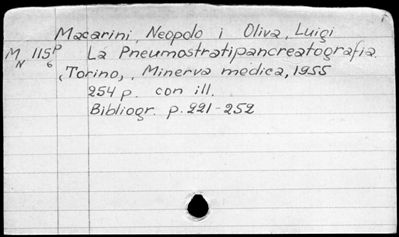 Macarini, Neopolo i Oliva, Luigi
MN 115p6 La Pneumostratipancreatografia.
(Torino), Minerva medica, 1955
254 p. con ill.
Bibliogr. p. 221-252